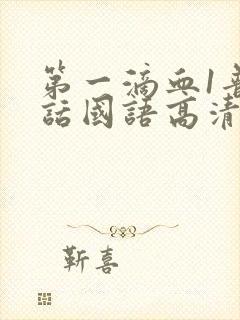 第一滴血1普
話國語高清
靳喜